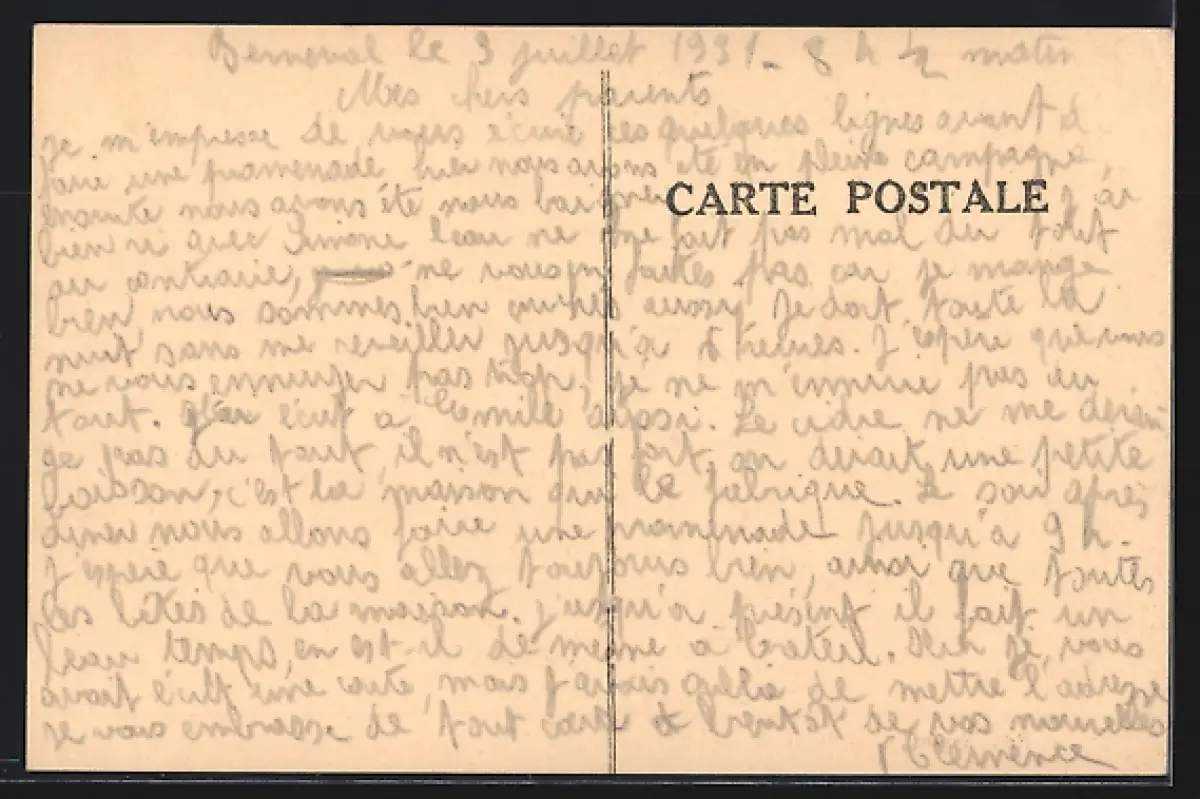 Berneval le 3 juillet 1931 - 8 h ½ matin
Mes chers parents
je m'empresse de vous écrire ces quelques lignes avant d
faire une promenade hier nous avons été en pleine campagne,
ensuite nous avons été nous baigner j'ai
CARTE POSTALE
bien ri avec Simone l'eau ne me fait pas mal du tout
au contraire, ne vous en faites pas car je mange
bien, nous sommes bien couchés aussi je dort toute la
nuit sans me reveiller jusqu'à 8 heures. J'espère que vous
ne vous ennuyer pas trop, je ne m'ennuie pas du
tout. J'ai écrit a Emile aussi. Le cidre ne me déran
ge pas du tout, il n'est pas fort, on dirait une petite
boisson, c'est la maison qui le fabrique. Le soir après
diner nous allons faire une promenade jusqu'a 9 h.
J'espère que vous allez toujours bien, ainsi que toutes
les bêtes de la maison. Jusqu'a présent il fait un
beau temps, en est-il de même a Créteil. Hier je vous
avait écrit une carte, mais j'avais oublié de mettre l'adresse
je vous embrasse de tout cœur et bientot de vos nouvelles
Clémence